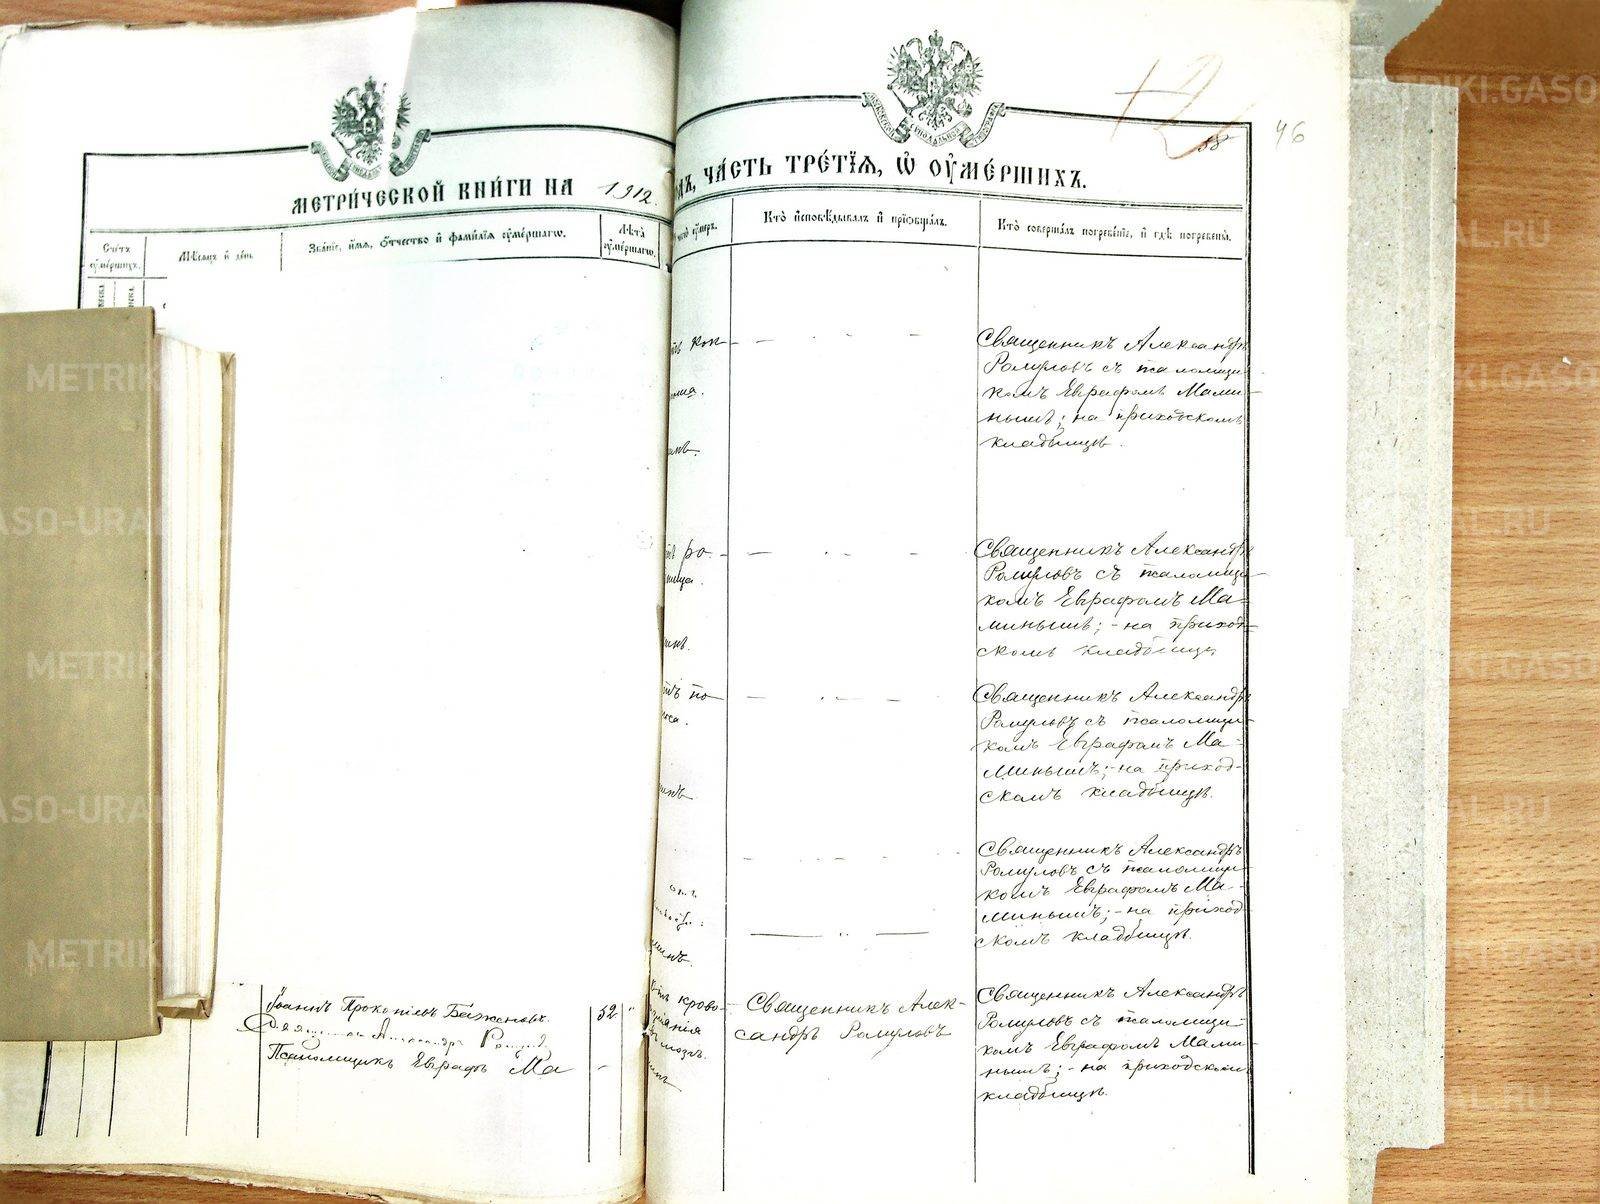 МЕТРИ́ЧЕСКОЙ КНИ́ГИ НА 1912.
ЧА́СТЬ ТРЕ́ТЇЯ, Ѡ҆ ОУ҆МЕ́РШИХЪ.
46
Сче́тъ
оу҆ме́ршихъ.
Мѣ́сяцъ и҆ де́нь
Зва́нїе, и҆́мя, ѻ҆́тчество и҆ фами́лїя оу҆ме́ршагѡ.
Лѣ́та
оу҆ме́ршагѡ.
Кто̀ и҆сповѣ́дывалъ и҆ прїѡбща́лъ.
Кто̀ соверша́лъ погребе́нїе, и҆ гдѣ̀ погребены̀.
Священникъ Александръ
Ромуловъ съ псаломщи-
комъ Евграфомъ Мами-
нымъ; на приходскомъ
кладбищѣ.
Священникъ Александръ
Ромуловъ съ псаломщи-
комъ Евграфомъ Ма-
минымъ; - на приход-
скомъ кладбищѣ
Священникъ Александръ
Ромуловъ съ псаломщи-
комъ Евграфомъ Ма-
минымъ; - на приход-
скомъ кладбищѣ.
Священникъ Александръ
Ромуловъ съ псаломщи-
комъ Евграфомъ Ма-
минымъ; - на приход-
скомъ кладбищѣ.
Іоаннъ Прокопіевъ Баженовъ.
52
Священникъ Александръ
Псаломщикъ Евграфъ Ма
крово-
Священникъ Алек-
сандръ Ромуловъ
Священникъ Александръ
Ромуловъ съ псаломщи-
комъ Евграфомъ Мами-
нымъ; - на приходскомъ
кладбищѣ.
METRIKI.GASO-URAL.RU